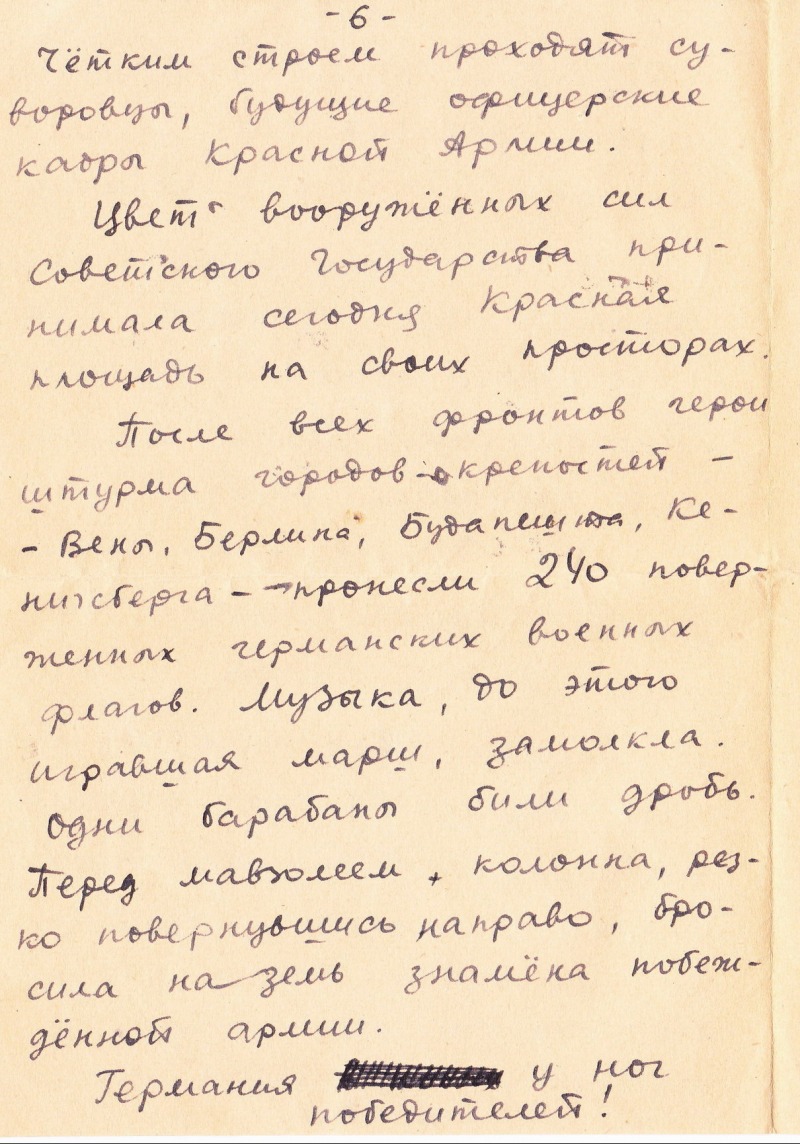 -6-
Чётким строем проходят су-
воровцы, будущие офицерские
кадры Красной Армии.
Цвет вооружённых сил
Советского Государства при-
нимала сегодня Красная
площадь на своих просторах.
После всех фронтов герои
штурма городов-крепостей -
- Вены, Берлина, Будапешта, Ке-
нигсберга - пронесли 240 повер-
женных германских военных
флагов. Музыка, до этого
игравшая марш, замолкла.
Одни барабаны били дробь.
Перед мавзолеем, колонна, рез-
ко повернувшись направо, бро-
сила на земь знамёна побеж-
дённой армии.
Германия у ног
победителей!